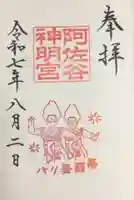 奉拝
阿佐谷
神明宮
令和七年八月二日